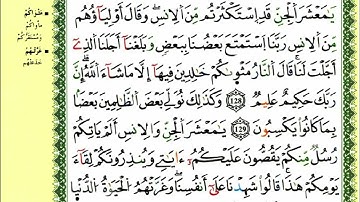 يَٰمَعْشَرَ ٱلْجِنِّ قَدِ ٱسْتَكْثَرْتُم مِّنَ ٱلْإِنسِ وَقَالَ أَوْلِيَآؤُهُم
مِّنَ ٱلْإِنسِ رَبَّنَا ٱسْتَمْتَعَ بَعْضُنَا بِبَعْضٍ وَبَلَغْنَآ أَجَلَنَا ٱلَّذِىٓ
أَجَّلْتَ لَنَا قَالَ ٱلنَّارُ مَثْوَىٰكُمْ خَٰلِدِينَ فِيهَآ إِلَّا مَا شَآءَ ٱللَّهُ إِنَّ
رَبَّكَ حَكِيمٌ عَلِيمٌ 128 وَكَذَٰلِكَ نُوَلِّى بَعْضَ ٱلظَّٰلِمِينَ بَعْضًۢا
بِمَا كَانُوا۟ يَكْسِبُونَ 129 يَٰمَعْشَرَ ٱلْجِنِّ وَٱلْإِنسِ أَلَمْ يَأْتِكُمْ
رُسُلٌ مِّنكُمْ يَقُصُّونَ عَلَيْكُمْ ءَايَٰتِى وَيُنذِرُونَكُمْ لِقَآءَ
يَوْمِكُمْ هَٰذَا قَالُوا۟ شَهِدْنَا عَلَىٰٓ أَنفُسِنَا وَغَرَّتْهُمُ ٱلْحَيَوٰةُ ٱلدُّنْيَا
مَثْوَاكُمْ
مَأْوَاكُمْ
وَمُسْتَقَرُّكُمْ
غَرَّتْهُمْ
خَدَعَتْهُمْ